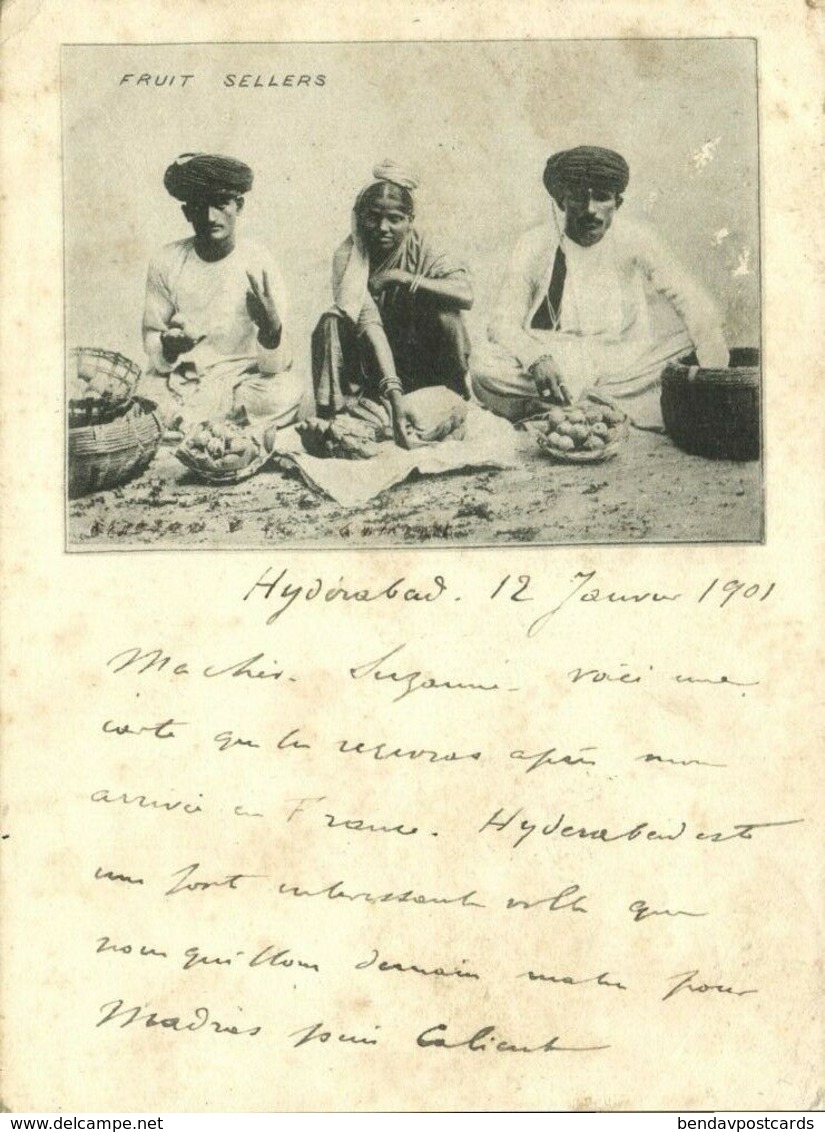 FRUIT SELLERS
Hydérabad. 12 Janvier 1901
Ma chère Suzanne voici une
carte que tu recevras après mon
arrivée en France. Hyderabad est
une fort intéressante ville que
nous quittons demain matin pour
Madras puis Calicut
www.delcampe.net
bendavpostcards